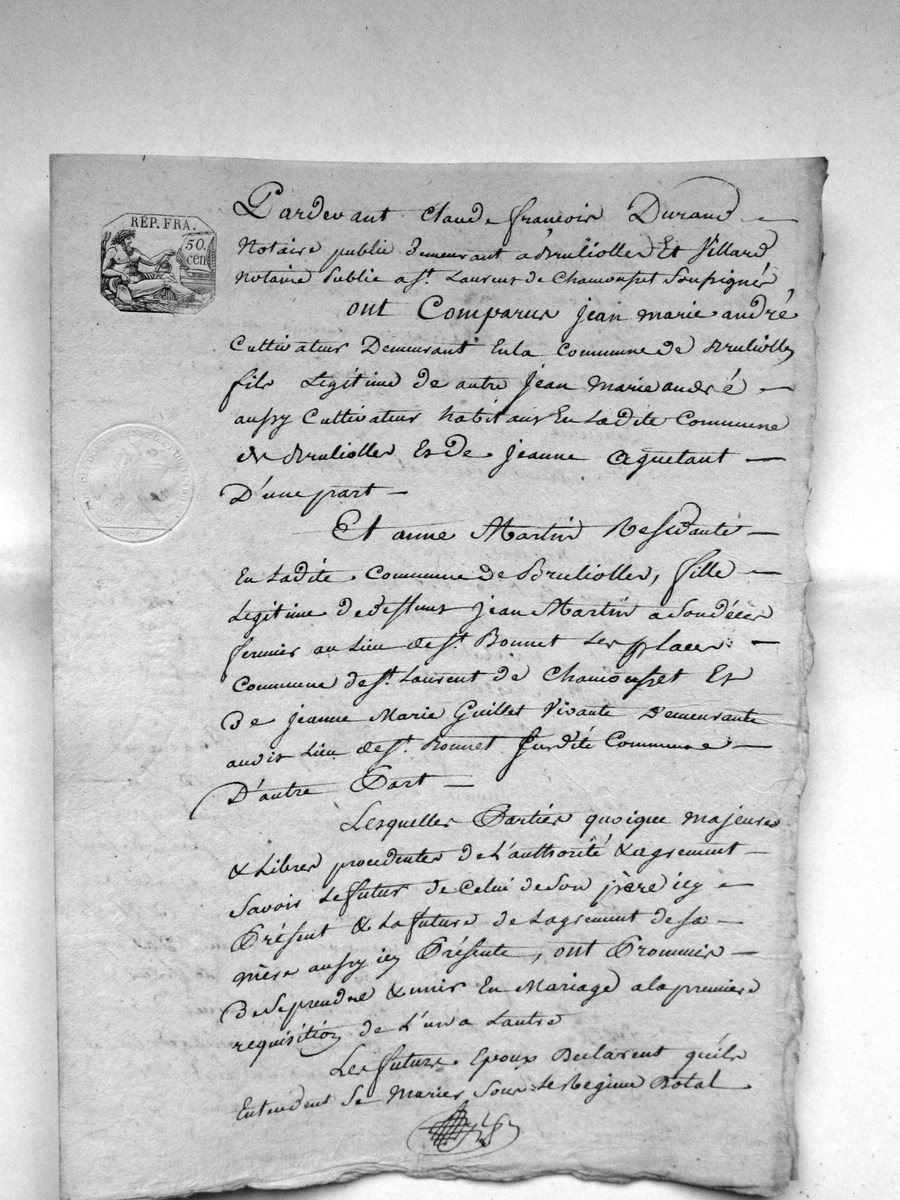 RÉP. FRA.
50.
cen
Pardevant Claude françois Durand
Notaire public demeurant a Bruliolles Et Villard
Notaire Public a St. Laurent de Chamousset Soussignés
ont Comparus jean marie andré
Cultivateur Demeurant En la Commune de Brulioles
fils Legitime de autre jean marie andré
aussy Cultivateur habitant En Ladite Commune
de Brulioller Et De jeanne Aguetant
D'une part
Et anne Martin Residante
En Ladite Commune de Brulioller, fille
Legitime de deffunt jean Martin a Son décès
fermier au Lieu de St. Bonnet Les places
Commune de St. Laurent de Chamousset Et
De jeanne Marie Guillet Vivante Demeurante
audit Lieu de St. Bonnet Susdite Commune
D'autre Part
Lesquelles Parties quoique majeures
& Libres procedentes de L'authorité & agrement
Savoir Le futur de Celui de Son père icy
Présent & La future de Lagrement de sa
mère aussy icy Présente, ont Prommis
De Se prendre & unir En Mariage a la premiere
requisition de L'un a Lautre
Les futurs Epoux Declarent quils
Entendent Se Marier Sous Le Regime Dotal